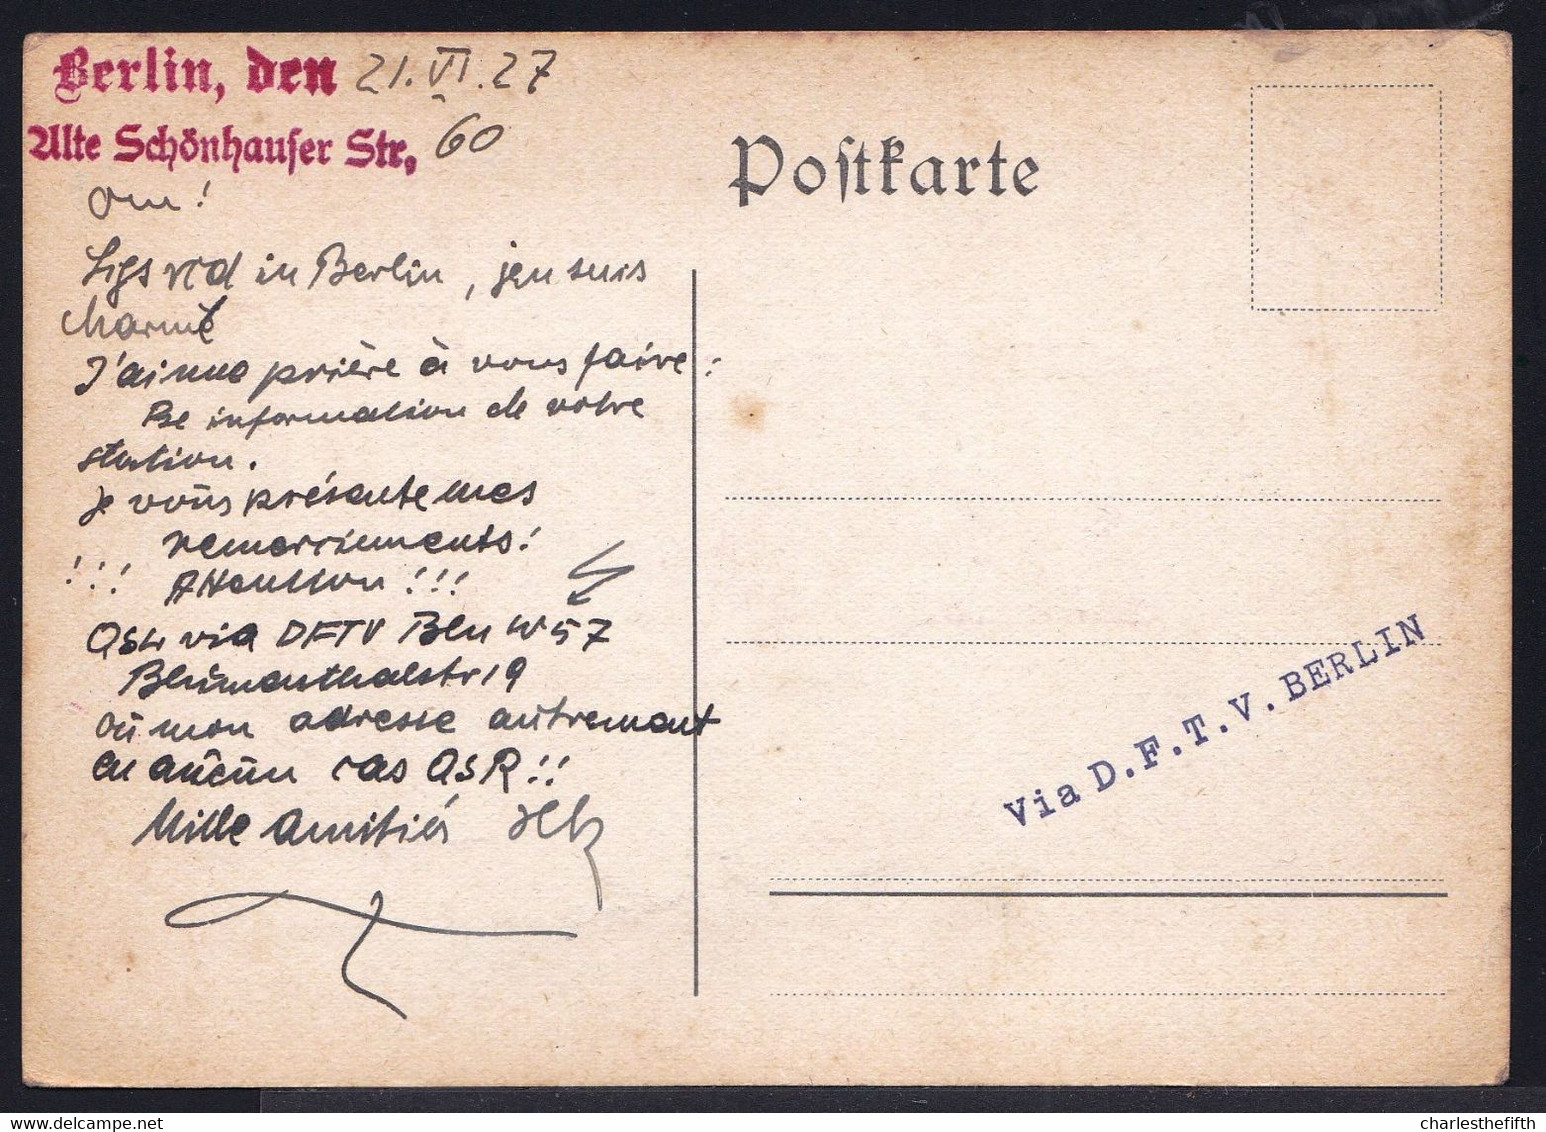 Berlin, den 21.VI.27
Alte Schönhauser Str. 60
Om!
Sigs rcd in Berlin, j'en suis
charmé
J'ai une prière à vous faire:
Pse information de votre
station.
je vous présente mes
remerciments!
!!! Attention!!!
QSL via DFTV Bln W57
Blumenthalstr 19
ou mon adresse autrement
en aucun cas QSR!!
Mille amitiés
Postkarte
Via D.F.T.V. BERLIN
charlesthefifth